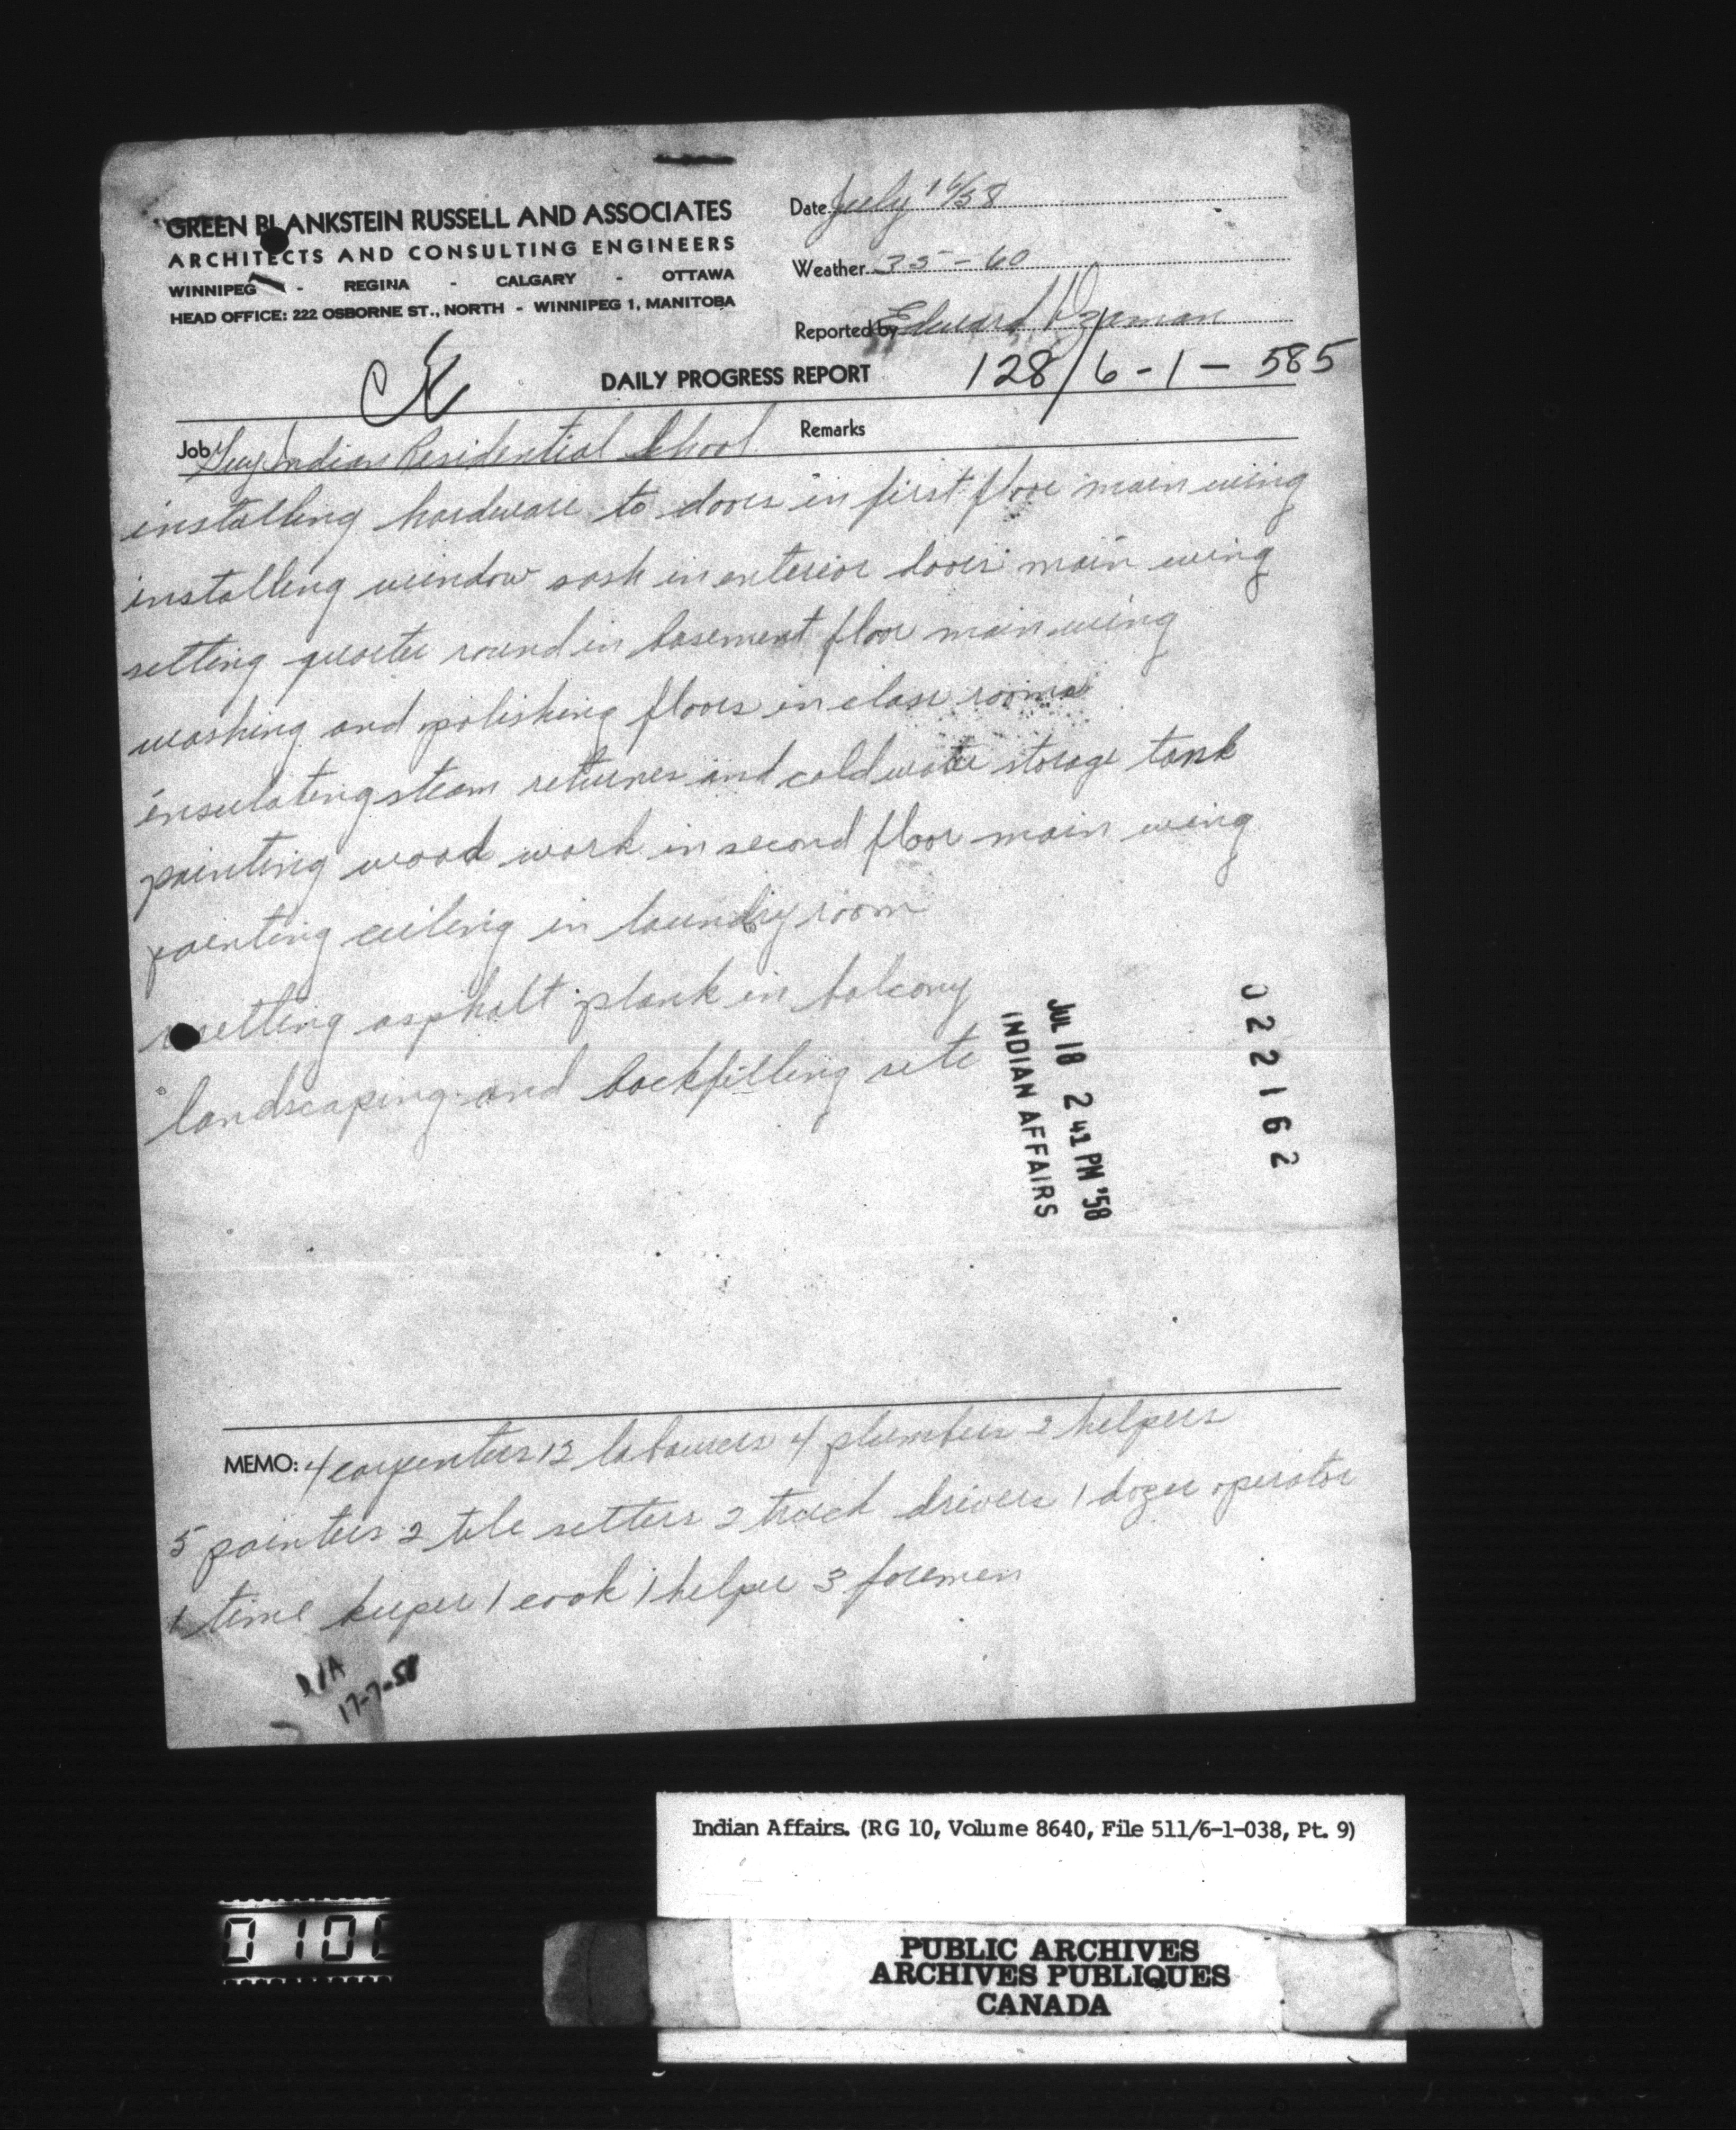 GREEN BLANKSTEIN RUSSELL AND ASSOCIATES
ARCHITECTS AND CONSULTING ENGINEERS
WINNIPEG - REGINA - CALGARY - OTTAWA
HEAD OFFICE: 222 OSBORNE ST., NORTH - WINNIPEG 1, MANITOBA
Date July 16/58
Weather 35-60
Reported by Edward
DAILY PROGRESS REPORT
128/6-1-585
Job Guy Indian Residential School
Remarks
installing hardware to doors in first floor main wing
installing window sash in exterior doors main wing
setting quarter round in basement floor main wing
washing and polishing floors in class rooms
insulating steam returnes and cold water storage tank
painting wood work in second floor main wing
painting ceiling in laundry room
setting asphalt plank in balcony
landscaping and backfilling site
JUL 18 2 41 PM '58
INDIAN AFFAIRS
022162
MEMO: 4 carpenters 12 labourers 4 plumbers 2 helpers
5 painters 2 tile setters 2 truck drivers 1 dozer operator
1 time keeper 1 cook 1 helper 3 foremen
17-7-58
Indian Affairs. (RG 10, Volume 8640, File 511/6-1-038, Pt. 9)
PUBLIC ARCHIVES
ARCHIVES PUBLIQUES
CANADA